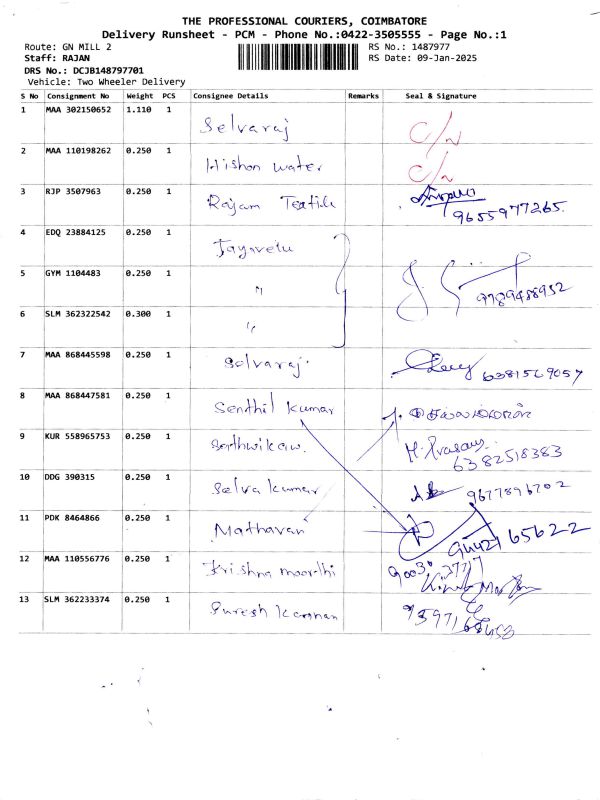 THE PROFESSIONAL COURIERS, COIMBATORE
Delivery Runsheet - PCM - Phone No.:0422-3505555 - Page No.:1
Route: GN MILL 2 RS No.: 1487977
Staff: RAJAN RS Date: 09-Jan-2025
DRS No.: DCJB148797701
Vehicle: Two Wheeler Delivery
S No Consignment No Weight PCS Consignee Details Remarks Seal & Signature
1 MAA 302150652 1.110 1 Selvaraj C/N
2 MAA 110198262 0.250 1 Hishon water C/N
3 RJP 3507963 0.250 1 Rajam Textile 9655977265
4 EDQ 23884125 0.250 1 Jayavelu
5 GYM 1104483 0.250 1 " 9789488952
6 SLM 362322542 0.300 1 "
7 MAA 868445598 0.250 1 Selvaraj 6381569057
8 MAA 868447581 0.250 1 Senthil Kumar
9 KUR 558965753 0.250 1 M. Prasanna
6382518383
10 DDG 390315 0.250 1 Selva Kumar 9677896702
11 PDK 8464866 0.250 1 Mathavan 65622
12 MAA 110556776 0.250 1 Krishna moorthi
13 SLM 362233374 0.250 1 Suresh Kannan